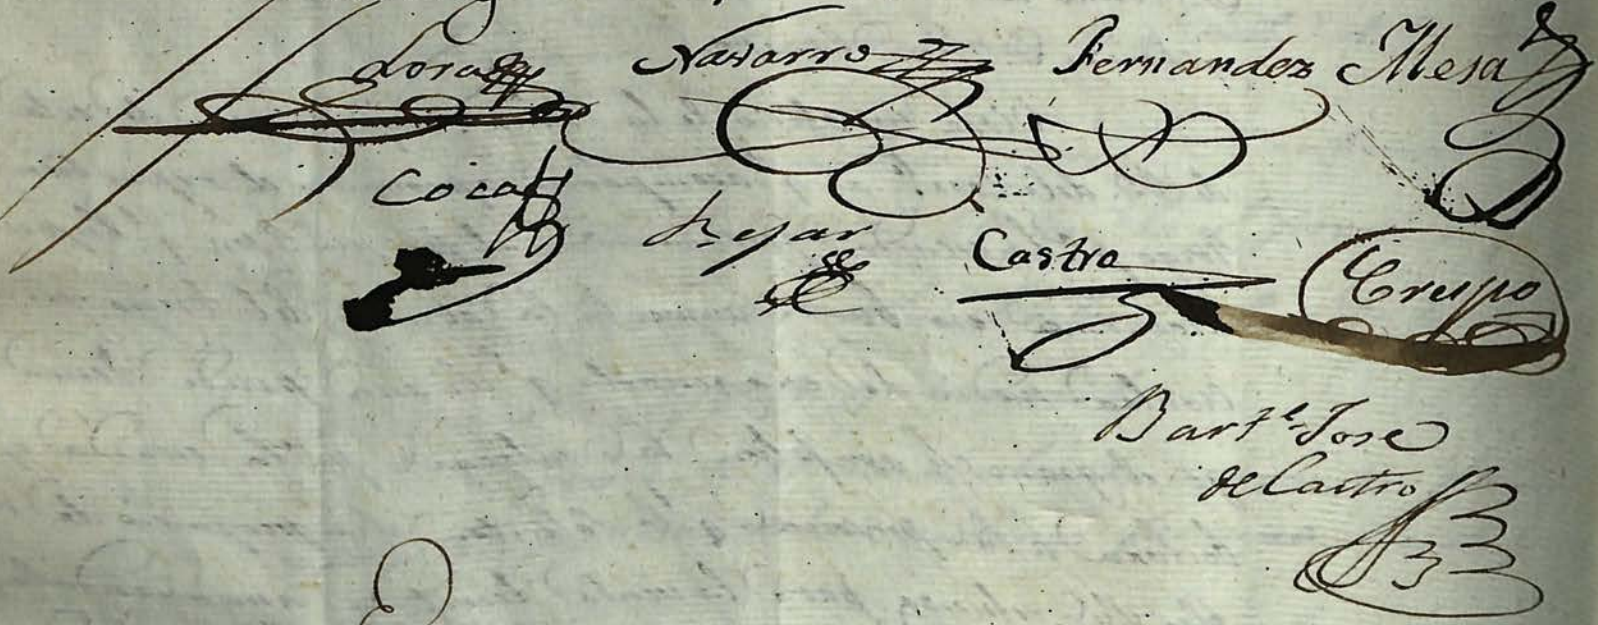 Lora Navarro Fernandez Mesa
Coca Castro Crespo
Bart.e Jose
de Castro